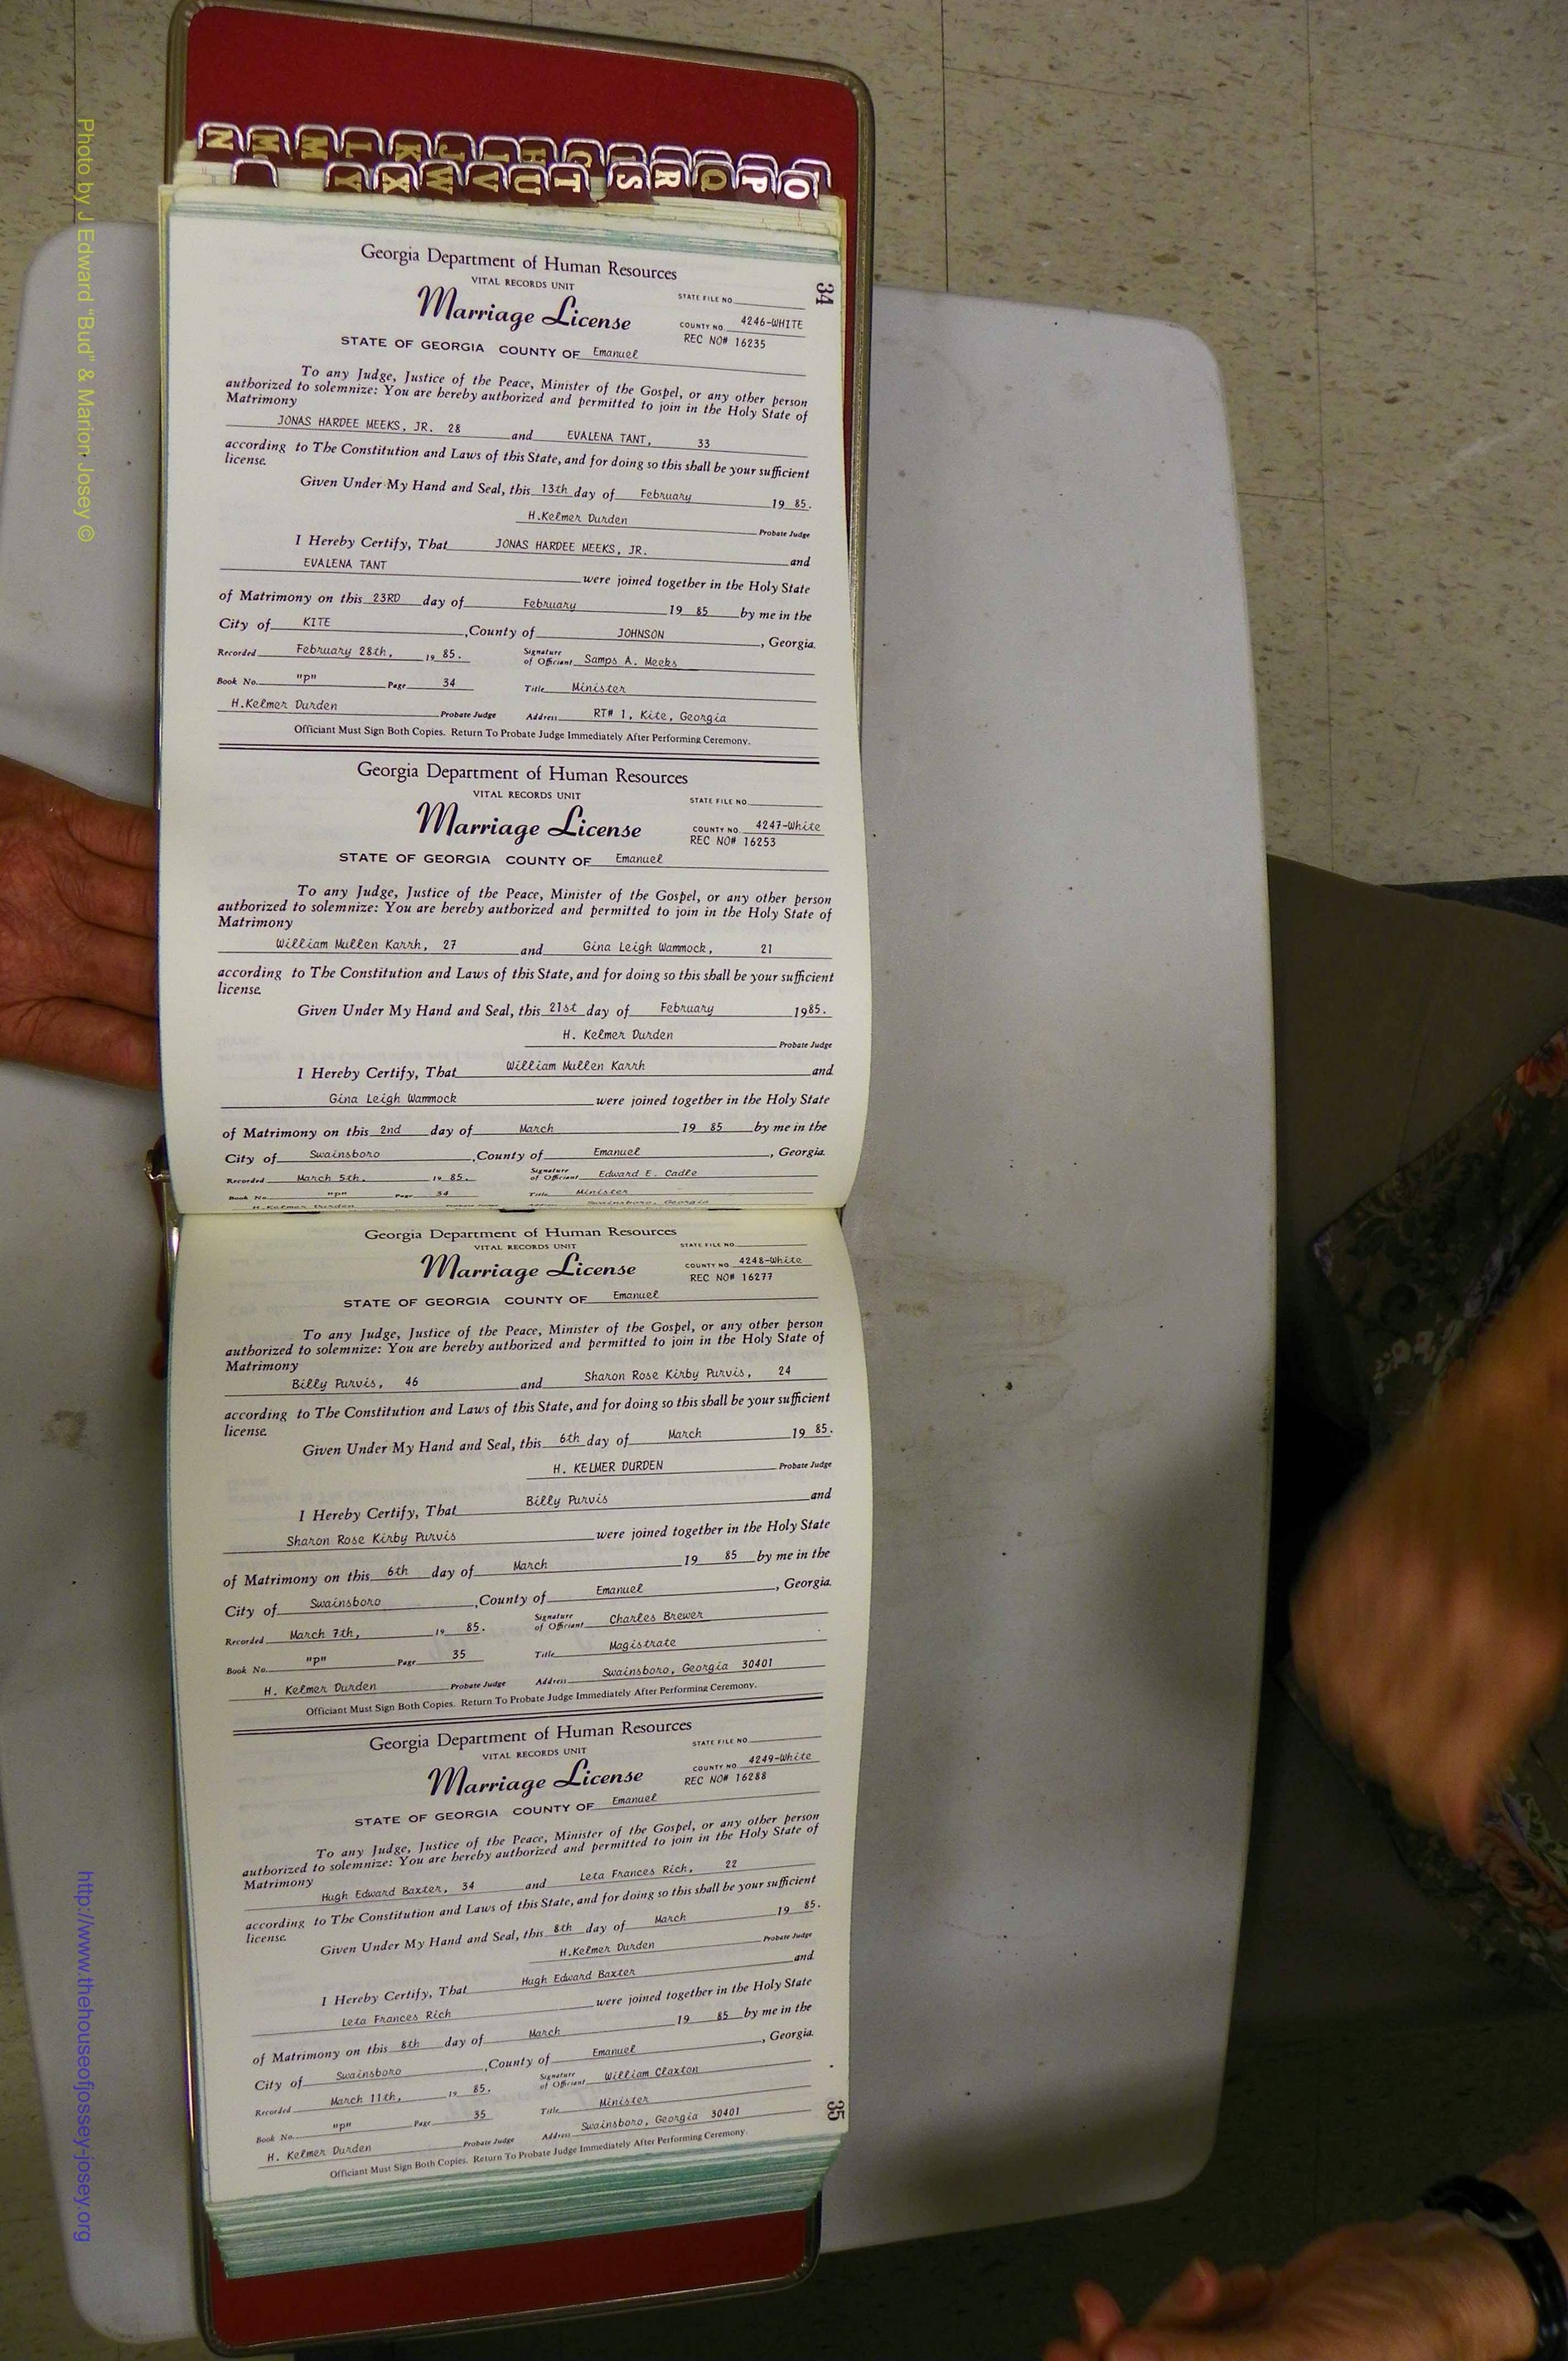 N M M L K J I H G
Y X W V U T S R Q P O
34
Georgia Department of Human Resources
VITAL RECORDS UNIT
STATE FILE NO.
Marriage License
COUNTY NO. 4246-WHITE
REC NO# 16235
STATE OF GEORGIA COUNTY OF Emanuel
To any Judge, Justice of the Peace, Minister of the Gospel, or any other person
authorized to solemnize: You are hereby authorized and permitted to join in the Holy State of
Matrimony
JONAS HARDEE MEEKS, JR. 28 and EVALENA TANT, 33
according to The Constitution and Laws of this State, and for doing so this shall be your sufficient
license.
Given Under My Hand and Seal, this 13th day of February 19 85.
H.Kelmer Durden
Probate Judge
I Hereby Certify, That JONAS HARDEE MEEKS, JR. and
EVALENA TANT were joined together in the Holy State
of Matrimony on this 23RD day of February 19 85 by me in the
City of KITE, County of JOHNSON, Georgia.
Recorded February 28th, 19 85. Signature of Officiant Samps A. Meeks
Book No. "p" Page 34 Title Minister
H.Kelmer Durden Probate Judge Address RT# 1, Kite, Georgia
Officiant Must Sign Both Copies. Return To Probate Judge Immediately After Performing Ceremony.
Georgia Department of Human Resources
VITAL RECORDS UNIT
STATE FILE NO.
Marriage License
COUNTY NO. 4247-White
REC NO# 16253
STATE OF GEORGIA COUNTY OF Emanuel
To any Judge, Justice of the Peace, Minister of the Gospel, or any other person
authorized to solemnize: You are hereby authorized and permitted to join in the Holy State of
Matrimony
William Mullen Karrh, 27 and Gina Leigh Wammock, 21
according to The Constitution and Laws of this State, and for doing so this shall be your sufficient
license.
Given Under My Hand and Seal, this 21st day of February 1985.
H. Kelmer Durden
Probate Judge
I Hereby Certify, That William Mullen Karrh and
Gina Leigh Wammock were joined together in the Holy State
of Matrimony on this 2nd day of March 19 85 by me in the
City of Swainsboro, County of Emanuel, Georgia.
Recorded March 5th, 19 85. Signature of Officiant Edward E. Cadle
Book No. "p" Page 34 Title Minister
H.Kelmer Durden Probate Judge Address Swainsboro, Georgia
Georgia Department of Human Resources
VITAL RECORDS UNIT
STATE FILE NO.
Marriage License
COUNTY NO. 4248-White
REC NO# 16277
STATE OF GEORGIA COUNTY OF Emanuel
To any Judge, Justice of the Peace, Minister of the Gospel, or any other person
authorized to solemnize: You are hereby authorized and permitted to join in the Holy State of
Matrimony
Billy Purvis, 46 and Sharon Rose Kirby Purvis, 24
according to The Constitution and Laws of this State, and for doing so this shall be your sufficient
license.
Given Under My Hand and Seal, this 6th day of March 19 85.
H. KELMER DURDEN Probate Judge
I Hereby Certify, That Billy Purvis and
Sharon Rose Kirby Purvis were joined together in the Holy State
of Matrimony on this 6th day of March 19 85 by me in the
City of Swainsboro, County of Emanuel, Georgia.
Recorded March 7th, 19 85. Signature of Officiant Charles Brewer
Book No. "p" Page 35 Title Magistrate
H. Kelmer Durden Probate Judge Address Swainsboro, Georgia 30401
Officiant Must Sign Both Copies. Return To Probate Judge Immediately After Performing Ceremony.
Georgia Department of Human Resources
VITAL RECORDS UNIT
STATE FILE NO.
Marriage License
COUNTY NO. 4249-White
REC NO# 16288
STATE OF GEORGIA COUNTY OF Emanuel
To any Judge, Justice of the Peace, Minister of the Gospel, or any other person
authorized to solemnize: You are hereby authorized and permitted to join in the Holy State of
Matrimony
Hugh Edward Baxter, 34 and Leta Frances Rich, 22
according to The Constitution and Laws of this State, and for doing so this shall be your sufficient
license.
Given Under My Hand and Seal, this 8th day of March 19 85.
H.Kelmer Durden Probate Judge
I Hereby Certify, That Hugh Edward Baxter and
Leta Frances Rich were joined together in the Holy State
of Matrimony on this 8th day of March 19 85 by me in the
City of Swainsboro, County of Emanuel, Georgia.
Recorded March 11th, 19 85. Signature of Officiant William Claxton
Book No. "p" Page 35 Title Minister
H. Kelmer Durden Probate Judge Address Swainsboro, Georgia 30401
Officiant Must Sign Both Copies. Return To Probate Judge Immediately After Performing Ceremony.
35
Photo by J Edward "Bud" & Marion Josey ©
http://www.thehouseofjossey-josey.org